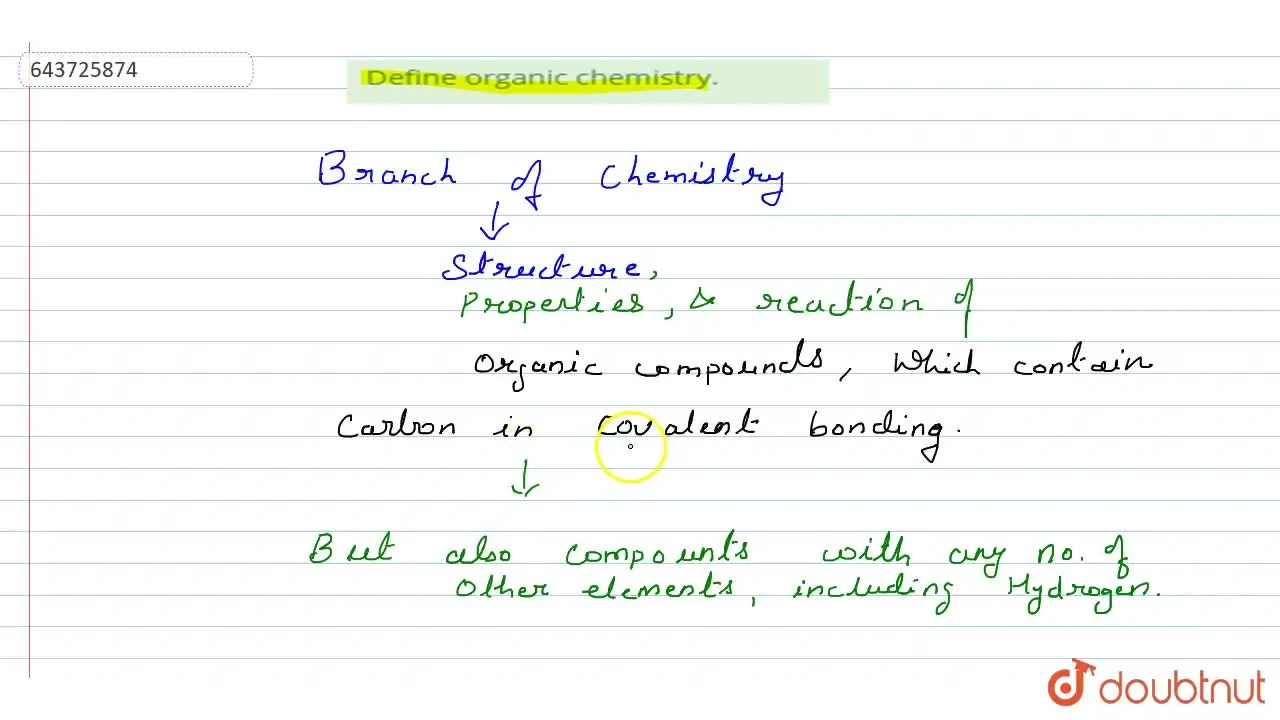 643725874
Define organic chemistry.
Branch of Chemistry
Structure,
Properties, & reaction of
Organic compounds, which contain
Carbon in Covalent bonding.
But also compounts with any no. of
Other elements, including Hydrogen.
doubtnut